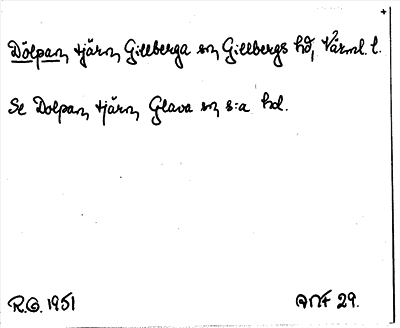 Dölpan, tjärn, Gillberga sn, Gillbergs hd, Värml. l.
Se Dolpan, tjärn, Glava sn, s:a hd.
R.G. 1951